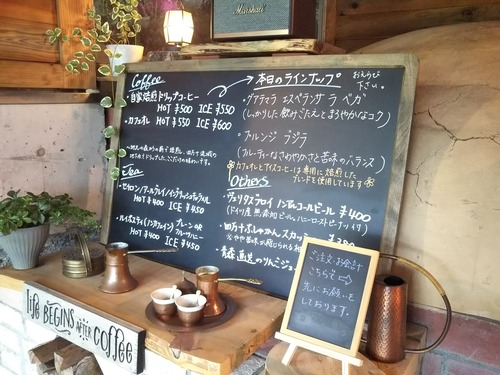 Marshall
Coffee
・自家焙煎ドリップコーヒー
HOT ¥500 ICE ¥550
・カフェオレ HOT ¥550 ICE ¥600
Tea
HOT ¥400
ICE ¥450
・ルイボスティ(ノンカフェイン) プレーン or
HOT ¥400
ICE ¥450
本日のラインナップ
おえらび
下さい。
・グアテマラ エスペランサ ラ ベガ
(しっかりした飲みごたえとまろやかなコク)
・ブルンジ ブジラ
(フルーティーなさわやかさと苦味のバランス)
カフェオレとアイスコーヒーは専用に焙煎した
ブレンドを使用しています
Others
・ヴェリタスブロイ ノンアルコールビール ¥400
(ドイツ産 無添加ビール。ハニーローストピーナッツ付)
・四万十ぶしゅかん スカッシュ
・青森 直送のりんごジュ
ご注文、お会計
こちらで⇨
先にお願いを
しております。
life BEGINS AFTER COFFEE